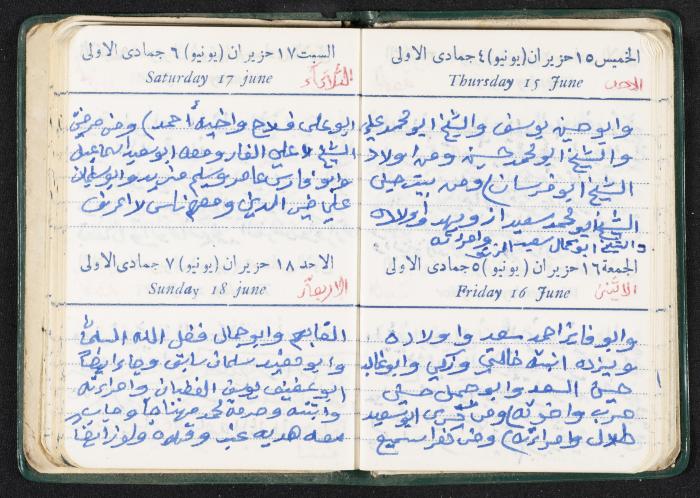 الخميس ١٥ حزيران (يونيو) ٤ جمادى الاولى
Thursday 15 June
الاحد
وابو حسين يوسف والشيخ ابو محمد علي
والشيخ ابو محمد حسين ومن اولاد
الشيخ ابو فرسان) ومن بيت جن
الشيخ ابو محمد سعيد
والشيخ ابو جمال سعيد وامرأته
الجمعة ١٦ حزيران (يونيو) ٥ جمادى الاولى
Friday 16 June
الاثنين
وابو فائز احمد سعد واولاده
ويزده ابنة خالتي وزكي وابو غالب
حسين السعد وابو جميل حسين
حرب واخوته) ومن ابو سعيد
طلال وامرأته) ومن كفر سميع
السبت ١٧ حزيران (يونيو) ٦ جمادى الاولى
Saturday 17 June
الثلاثاء
ابو علي فلاح واخيه أحمد) ومن
الشيخ علي الفار ومعه ابو سعيد اسماعيل
وابو فارس عامر وسليم فريد وابو سليمان
علي خير الدين ومعهم ناس لا اعرف
الاحد ١٨ حزيران (يونيو) ٧ جمادى الاولى
Sunday 18 June
الاربعاء
وابو جمال فضل الله
وابو مفيد سلمان سابق وجاء ايضاً
ابو عفيف يوسف الغضبان وامرأته
وابنته وحرمة محمد مهنا وجاب
معه هديه عنب وقهوه ولوز ايضاً